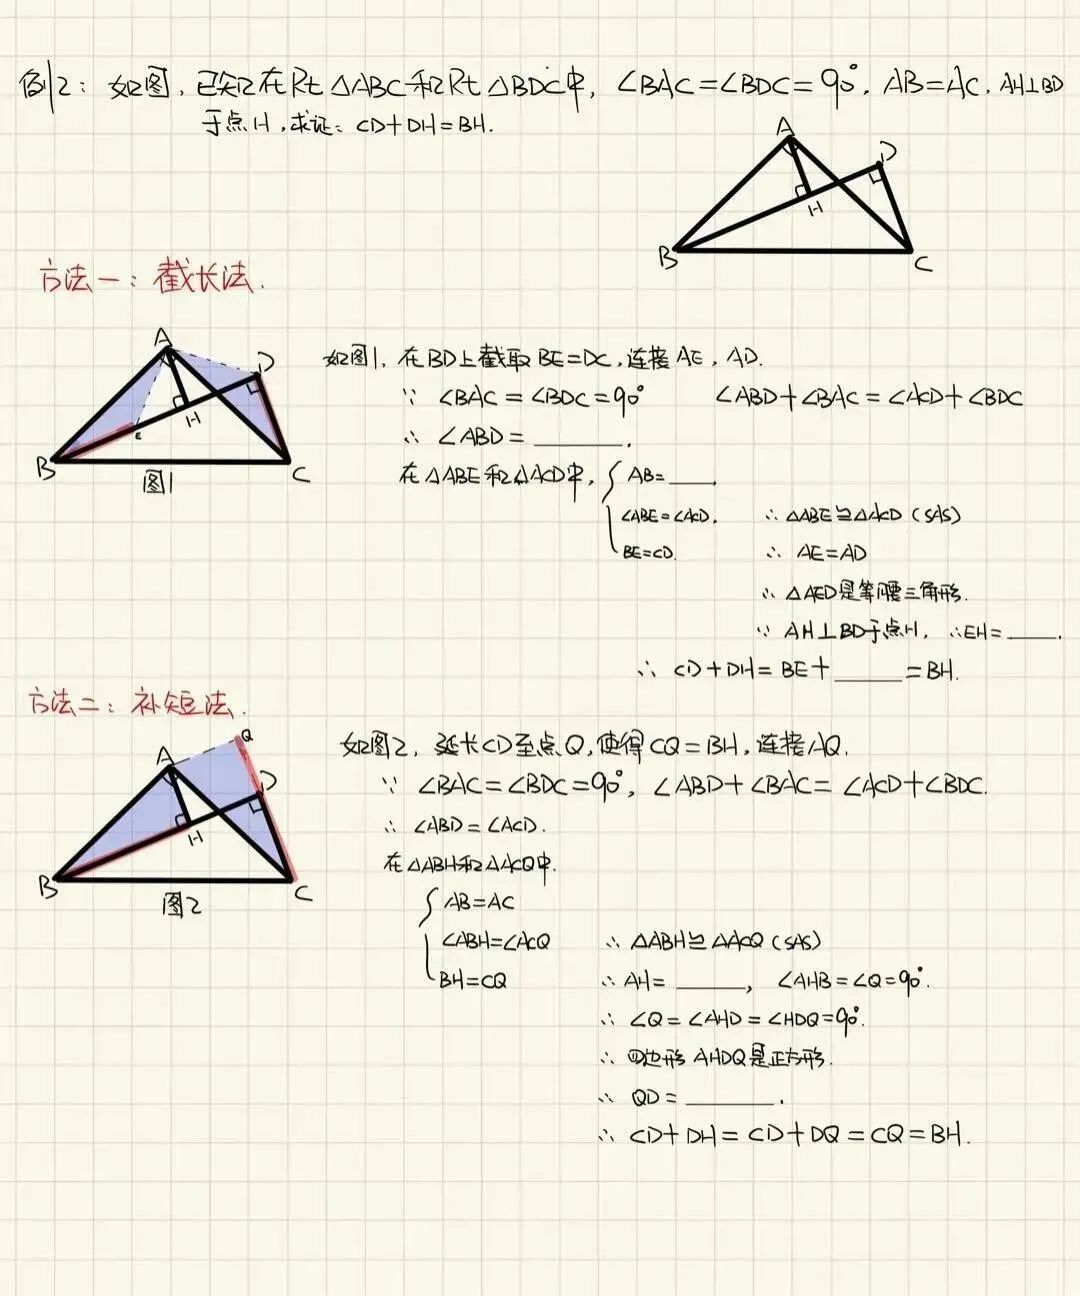 例2：如图，已知在Rt△ABC和Rt△BDC中，∠BAC=∠BDC=90°，AB=AC，AH⊥BD
于点H，求证：CD+DH=BH.
A
D
H
B
C
方法一：截长法.
A
D
H
E
B
C
图1
如图1，在BD上截取BE=DC，连接AE，AD.
∵ ∠BAC=∠BDC=90° ∠ABD+∠BAC=∠ACD+∠BDC
∴ ∠ABD=______.
在△ABE和△ACD中，{ AB=____,
∠ABE=∠ACD, ∴ △ABE≌△ACD（SAS）
BE=CD. ∴ AE=AD
∴ △AED是等腰三角形.
∵ AH⊥BD于点H，∴EH=____.
∴ CD+DH=BE+_____=BH.
方法二：补短法.
A
Q
D
H
B
C
图2
如图2，延长CD至点Q，使得CQ=BH，连接AQ.
∵ ∠BAC=∠BDC=90°，∠ABD+∠BAC=∠ACD+∠BDC.
∴ ∠ABD=∠ACD.
在△ABH和△ACQ中.
{ AB=AC
∠ABH=∠ACQ ∴ △ABH≌△ACQ（SAS）
BH=CQ ∴ AH=_____， ∠AHB=∠Q=90°.
∴ ∠Q=∠AHD=∠HDQ=90°.
∴ 四边形AHDQ是正方形.
∴ QD=______.
∴ CD+DH=CD+DQ=CQ=BH.